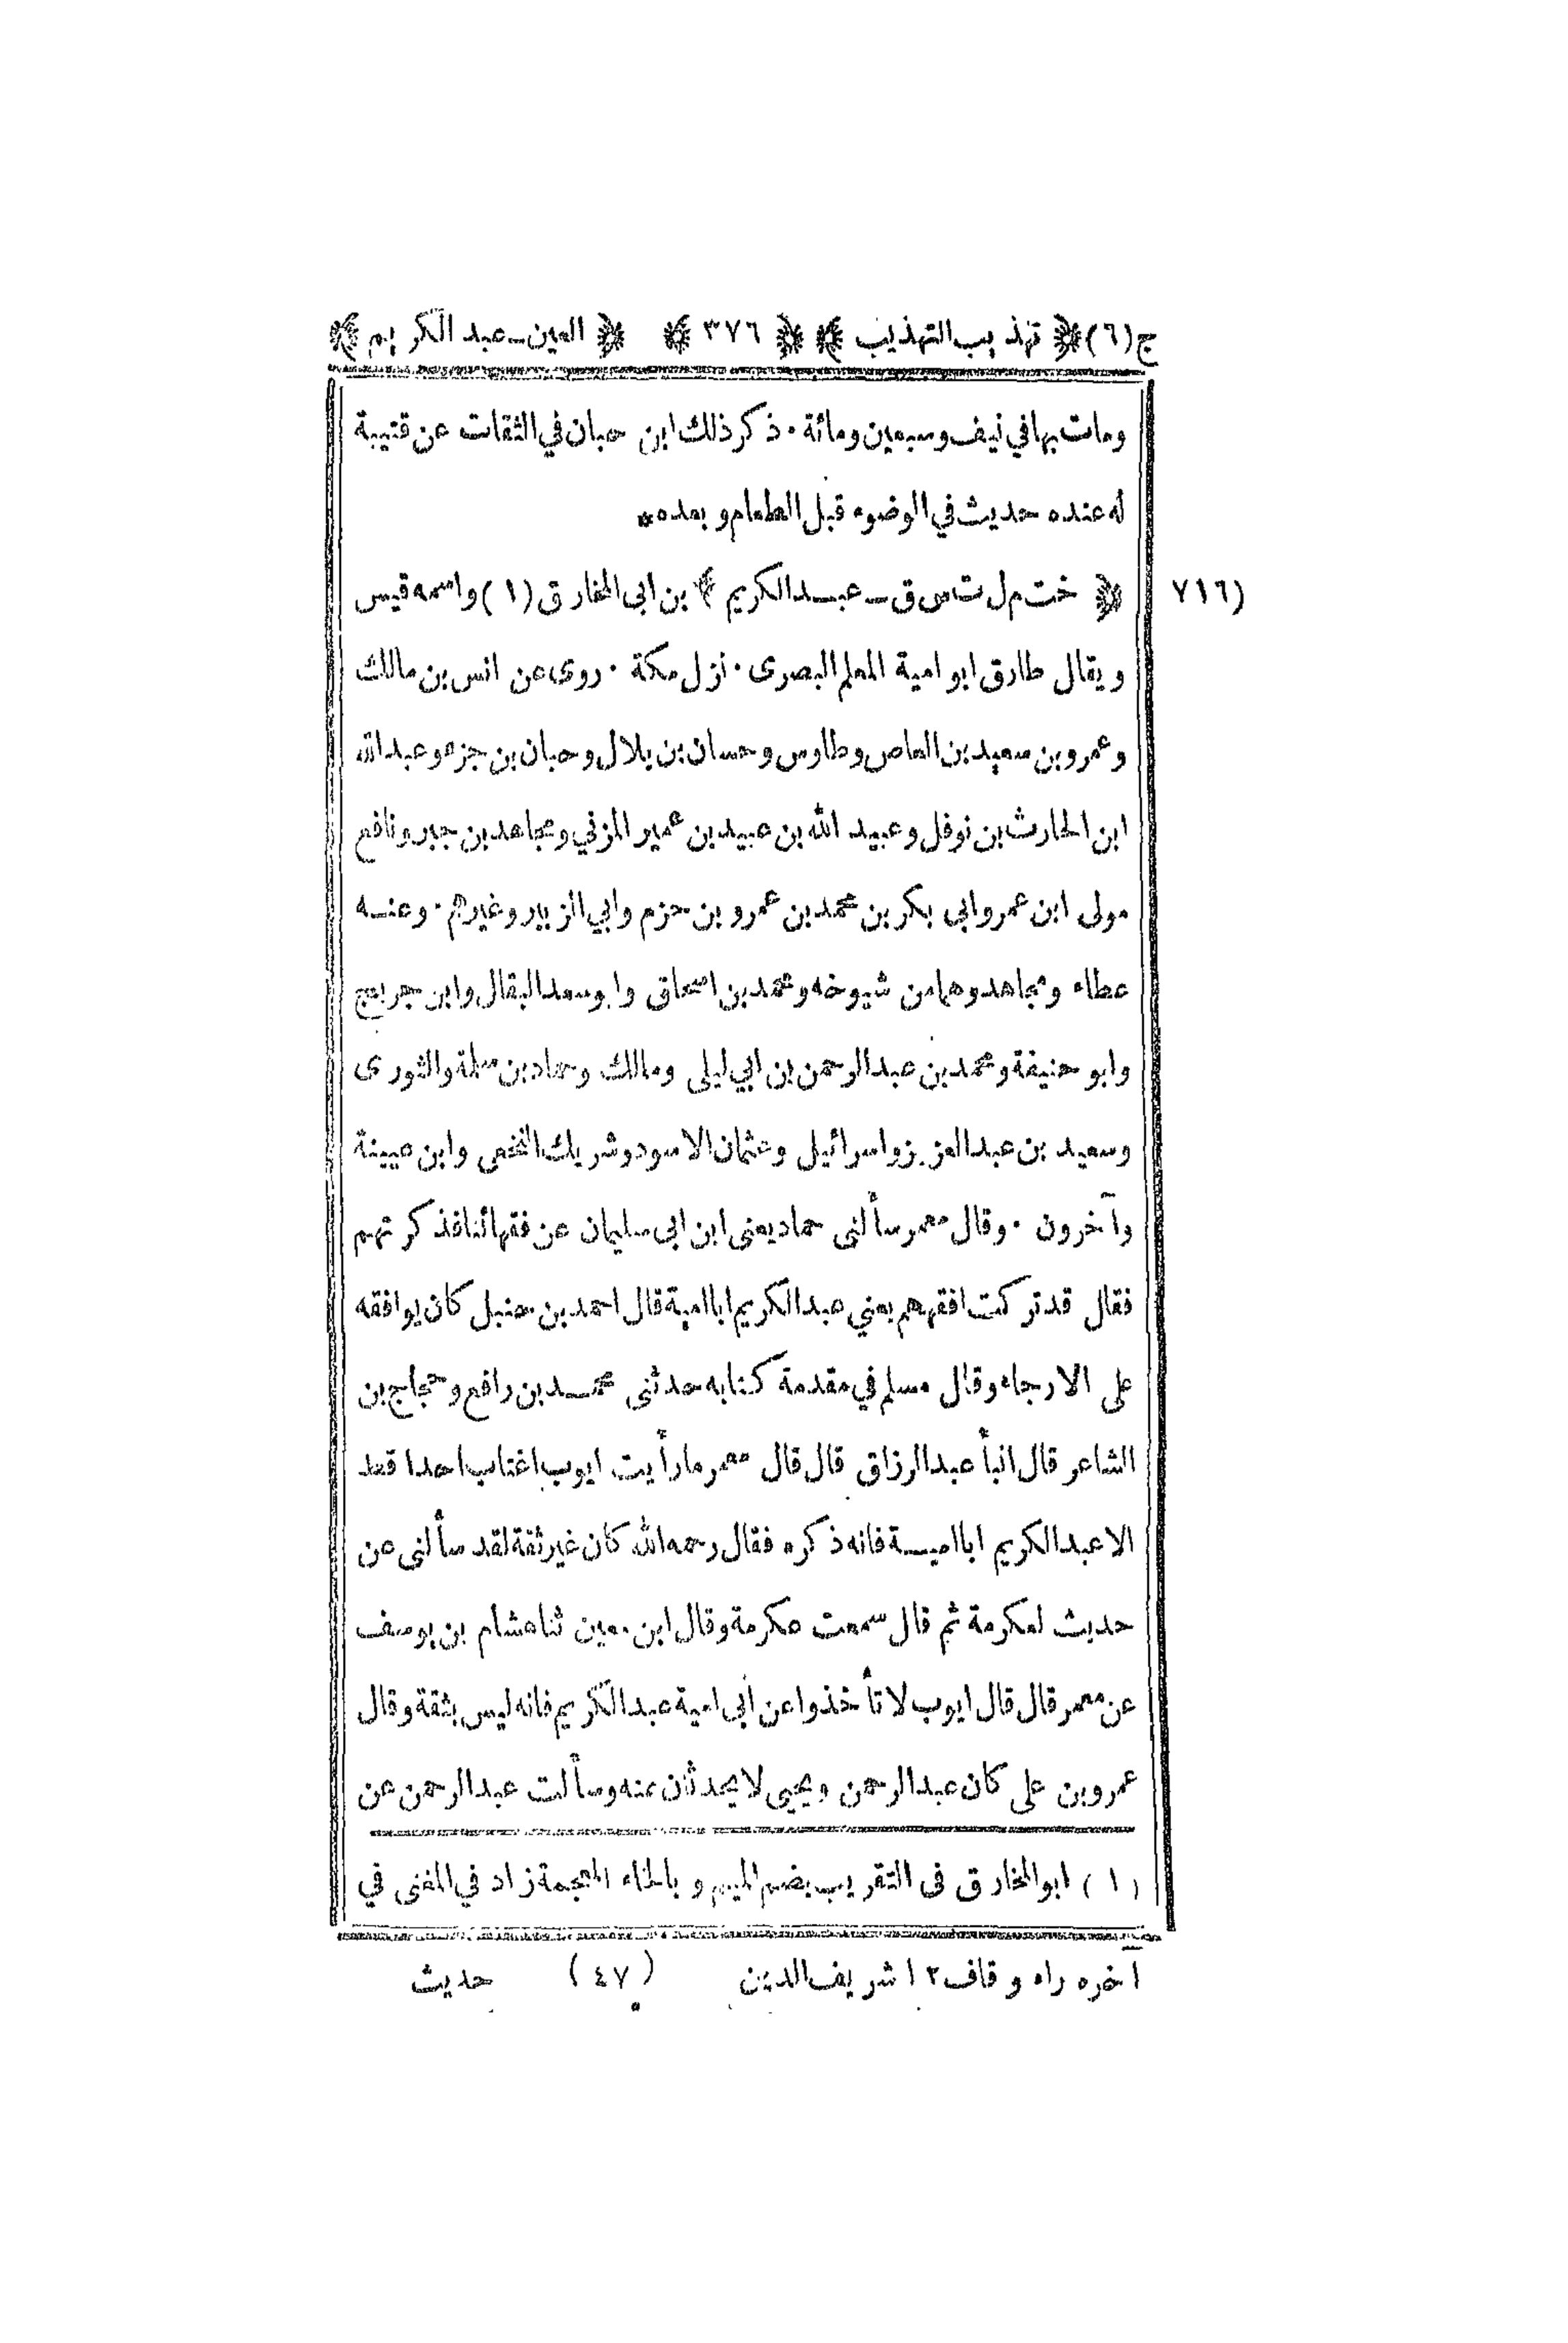 ج(٦) ﴿ تهذيب التهذيب ﴾ ﴿ ٣٧٦ ﴾ ﴿ العين ـ عبد الكريم ﴾
ومات بها في نيف وسبعين ومائة · ذكر ذلك ابن حبان في الثقات عن قتيبة
له عنده حديث في الوضوء قبل الطعام وبعده *
(٧١٦ ﴿ خت م ل ت س ق ـ عبد الكريم ﴾ بن ابى المخارق (١) واسمه قيس
ويقال طارق ابو امية المعلم البصرى · نزل مكة · روى عن انس بن مالك
وعمرو بن سعيد بن العاص وطاوس وحسان بن بلال وحبان بن جزء وعبد الله
ابن الحارث بن نوفل وعبيد الله بن عبيد بن عمير المزني ومجاهد بن جبر ونافع
مولى ابن عمر وابى بكر بن محمد بن عمرو بن حزم وابي الزبير وغيرهم · وعنه
عطاء ومجاهد وهما من شيوخه ومحمد بن اسحاق وابو سعد البقال وابن جريج
وابو حنيفة ومحمد بن عبد الرحمن بن ابي ليلى ومالك وحماد بن سلمة والثورى
وسعيد بن عبد العزيز واسرائيل وعثمان الاسود وشريك النخعى وابن عيينة
وآخرون · وقال معمر سألنى حماد يعنى ابن ابى سليمان عن فقهائنا فذكرتهم
فقال قد تركت افقههم يعني عبد الكريم ابا امية قال احمد بن حنبل كان يوافقه
على الارجاء وقال مسلم في مقدمة كتابه حدثنى محمد بن رافع وحجاج بن
الشاعر قال انبأ عبد الرزاق قال قال معمر مارأيت ايوب اغتاب احدا قط
الا عبد الكريم ابا امية فانه ذكره فقال رحمه الله كان غير ثقة لقد سألنى عن
حديث لعكرمة ثم قال سمعت عكرمة وقال ابن معين ثنا هشام بن يوسف
عن معمر قال قال ايوب لا تأخذوا عن ابى امية عبد الكريم فانه ليس بثقة وقال
عمرو بن على كان عبد الرحمن ويحيى لا يحدثان عنه وسألت عبد الرحمن عن
(١) ابو المخارق فى التقريب بضم الميم وبالخاء المعجمة زاد في المغنى في
آخره راء وقاف ١٢ شريف الدين (٤٧) حديث